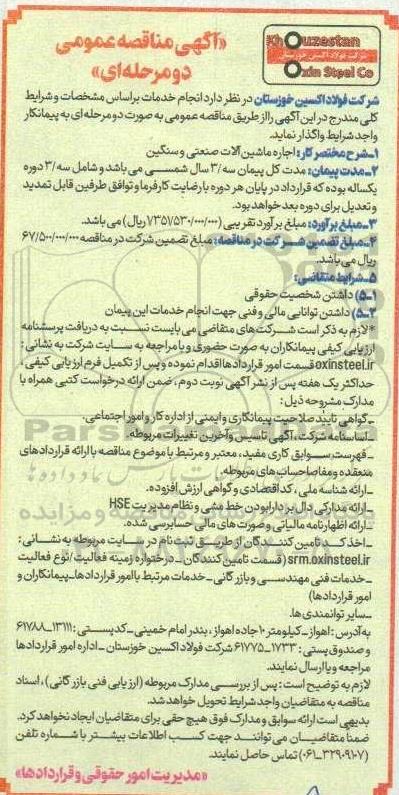 Khouzestan
شرکت فولاد اکسین خوزستان
Oxin Steel Co
«آگهی مناقصه عمومی
دو مرحله‌ای»
شرکت فولاد اکسین خوزستان در نظر دارد انجام خدمات براساس مشخصات و شرایط
کلی مندرج در این آگهی را از طریق مناقصه عمومی به صورت دو مرحله‌ای به پیمانکار
واجد شرایط واگذار نماید.
۱ـ شرح مختصر کار: اجاره ماشین‌آلات صنعتی و سنگین
۲ـ مدت پیمان: مدت کل پیمان سه/۳ سال شمسی می باشد و شامل سه/۳ دوره
یکساله بوده که قرارداد در پایان هر دوره با رضایت کارفرما و توافق طرفین قابل تمدید
و تعدیل برای دوره بعد خواهد بود.
۳ـ مبلغ برآورد: مبلغ برآورد تقریبی (۷۳۵۷/۵۳۰/۰۰۰/۰۰۰ ریال) می باشد.
۴ـ مبلغ تضمین شرکت در مناقصه: مبلغ تضمین شرکت در مناقصه ۶۷/۵۰۰/۰۰۰/۰۰۰
ریال می باشد.
۵ـ شرایط متقاضی:
۵ـ۱) داشتن شخصیت حقوقی
۵ـ۲) داشتن توانایی مالی و فنی جهت انجام خدمات این پیمان
*لازم به ذکر است شرکت های متقاضی می بایست نسبت به دریافت پرسشنامه
ارزیابی کیفی پیمانکاران به صورت حضوری و یا مراجعه به سایت شرکت به نشانی:
oxinsteel.ir قسمت امور قراردادها اقدام نموده و پس از تکمیل فرم ارزیابی کیفی،
حداکثر یک هفته پس از نشر آگهی نوبت دوم، ضمن ارائه درخواست کتبی همراه با
مدارک مشروحه ذیل:
ـ گواهی تایید صلاحیت پیمانکاری و ایمنی از اداره کار و امور اجتماعی.
ـ اساسنامه شرکت، آگهی تاسیس و آخرین تغییرات مربوطه.
ـ فهرست سوابق کاری مفید، معتبر و مرتبط با موضوع مناقصه با ارائه قراردادهای
منعقده و مفاصاحساب های مربوطه.
ـ ارائه شناسه ملی، کد اقتصادی و گواهی ارزش افزوده.
ـ ارائه مدارکی دال بر دارا بودن خط مشی و نظام مدیریت HSE
ـ ارائه اظهارنامه مالیاتی و صورت های مالی حسابرسی شده.
ـ اخذ کد تامین کنندگان از طریق ثبت نام در سایت مربوطه به نشانی:
srm.oxinsteel.ir (قسمت تامین کنندگان ـ درخواره زمینه فعالیت/نوع فعالیت
ـ خدمات فنی مهندسی و بازرگانی ـ خدمات مرتبط با امور قراردادها ـ پیمانکاران و
امور قراردادها)
ـ سایر توانمندی ها.
به آدرس: اهواز ـ کیلومتر ۱۰ جاده اهواز، بندر امام خمینی ـ کدپستی: ۱۳۱۱۱ـ۶۱۷۸۸
و صندوق پستی: ۱۷۳۳ـ۶۱۷۷۵ شرکت فولاد اکسین خوزستان ـ اداره امور قراردادها
مراجعه و یا ارسال نمایند.
لازم به توضیح است: پس از بررسی مدارک مربوطه (ارزیابی فنی بازرگانی)، اسناد
مناقصه به متقاضیان واجد شرایط تحویل خواهد شد.
بدیهی است ارائه سوابق و مدارک فوق هیچ حقی برای متقاضیان ایجاد نخواهد کرد.
ضمنا متقاضیان می توانند جهت کسب اطلاعات بیشتر با شماره تلفن
(۰۶۱ـ۳۲۹۰۹۱۰۷) تماس حاصل نمایند.
«مدیریت امور حقوقی و قراردادها»